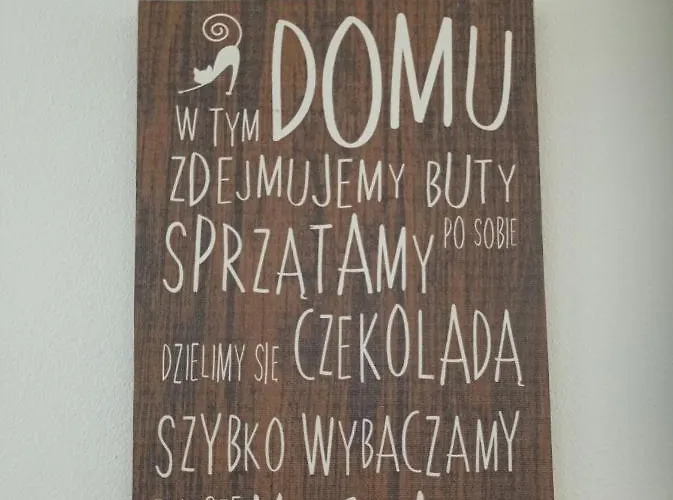 W TYM DOMU
ZDEJMUJEMY BUTY
SPRZĄTAMY PO SOBIE
DZIELIMY SIĘ CZEKOLADĄ
SZYBKO WYBACZAMY